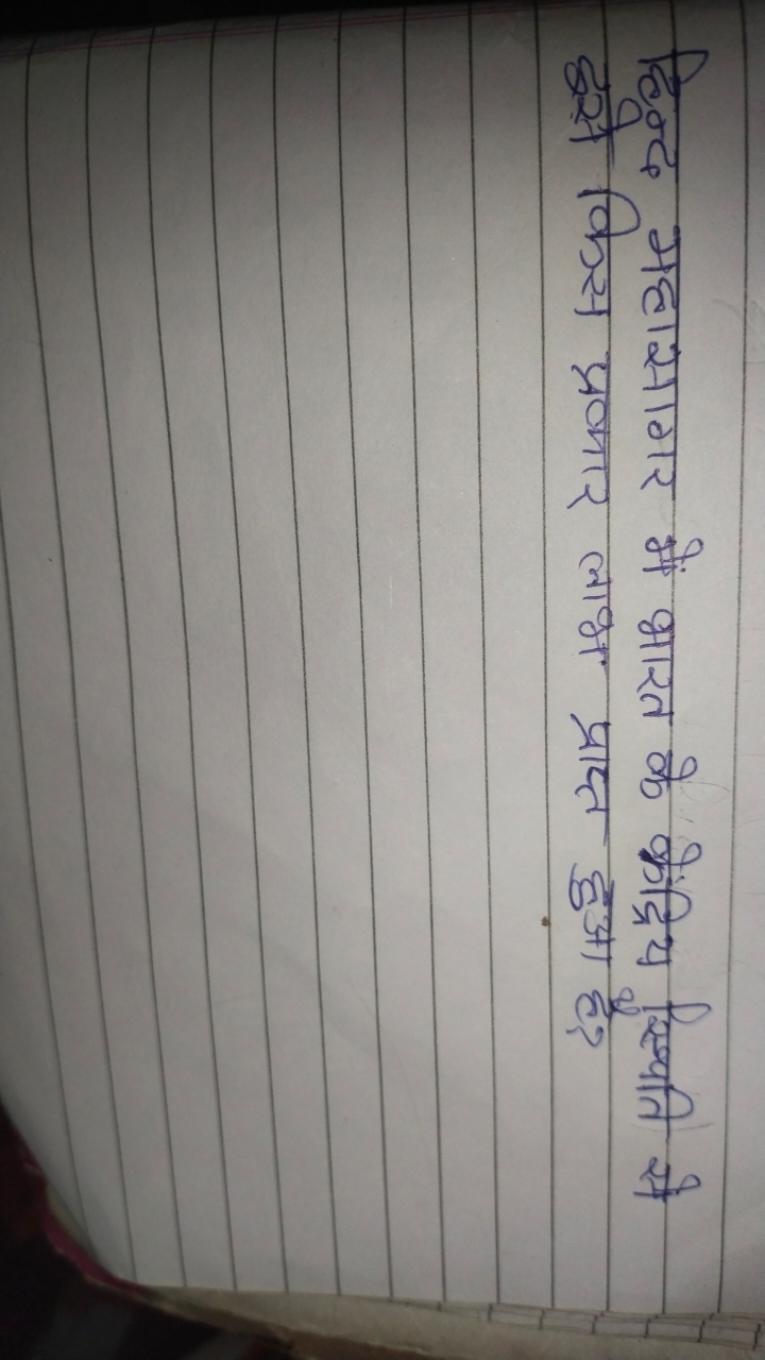 हिन्द महासागर में भारत के केंद्रिय स्थिति से
इसे किस प्रकार लाभ प्राप्त हुआ है?